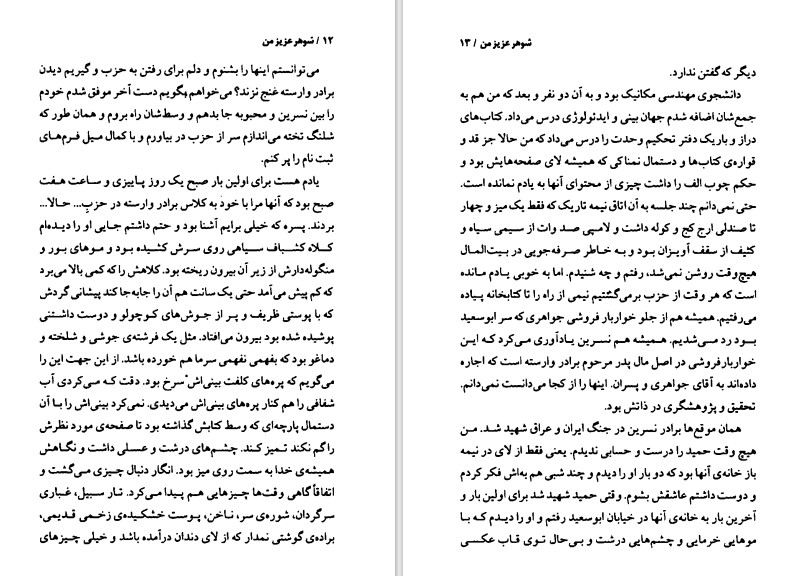 ۱۲ / شوهر عزیز من
می‌توانستم اینها را بشنوم و دلم برای رفتن به حزب و گیریم دیدن
برادر وارسته غنج نزند؟ می‌خواهم بگویم دست آخر موفق شدم خودم
را بین نسرین و محبوبه جا بدهم و وسط‌شان راه بروم و همان طور که
شلنگ تخته می‌اندازم سر از حزب در بیاورم و با کمال میل فرم‌های
ثبت نام را پر کنم.
یادم هست برای اولین بار صبح یک روز پاییزی و ساعت هفت
صبح بود که آنها مرا با خود به کلاس برادر وارسته در حزب... حالا...
بردند. پسره که خیلی برایم آشنا بود و حتم داشتم جایی او را دیده‌ام
کلاه کشباف سیاهی روی سرش کشیده بود و موهای بور و
منگوله‌دارش از زیر آن بیرون ریخته بود. کلاهش را که کمی بالا می‌برد
که کم پیش می‌آمد حتی یک سانت هم آن را جابه‌جا کند پیشانی گردش
که با پوستی ظریف و پر از جوش‌های کوچولو و دوست داشتنی
پوشیده شده بود بیرون می‌افتاد. مثل یک فرشته‌ی جوشی و شلخته و
دماغو بود که بفهمی نفهمی سرما هم خورده باشد. از این جهت این را
می‌گویم که پره‌های کلفت بینی‌اش سرخ بود. دقت که می‌کردی آب
شفافی را هم کنار پره‌های بینی‌اش می‌دیدی. نمی‌کرد بینی‌اش را با آن
دستمال پارچه‌ای که وسط کتابش گذاشته بود تا صفحه‌ی مورد نظرش
را گم نکند تمیز کند. چشم‌های درشت و عسلی داشت و نگاهش
همیشه‌ی خدا به سمت روی میز بود. انگار دنبال چیزی می‌گشت و
اتفاقاً گاهی وقت‌ها چیزهایی هم پیدا می‌کرد. تار سبیل، غباری
سرگردان، شوره‌ی سر، ناخن، پوست خشکیده‌ی زخمی قدیمی،
براده‌ی گوشتی نمدار که از لای دندان درآمده باشد و خیلی چیزهای
شوهر عزیز من / ۱۳
دیگر که گفتن ندارد.
دانشجوی مهندسی مکانیک بود و به آن دو نفر و بعد که من هم به
جمع‌شان اضافه شدم جهان بینی و ایدئولوژی درس می‌داد. کتاب‌های
دراز و باریک دفتر تحکیم وحدت را درس می‌داد که من حالا جز قد و
قواره‌ی کتاب‌ها و دستمال نمناکی که همیشه لای صفحه‌هایش بود و
حکم چوب الف را داشت چیزی از محتوای آنها به یادم نمانده است.
حتی نمی‌دانم چند جلسه به آن اتاق نیمه تاریک که فقط یک میز و چهار
تا صندلی ارج کج و کوله داشت و لامپی صد وات از سیمی سیاه و
کثیف از سقف آویزان بود و به خاطر صرفه‌جویی در بیت‌المال
هیچ‌وقت روشن نمی‌شد، رفتم و چه شنیدم. اما به خوبی یادم مانده
است که هر وقت از حزب برمی‌گشتیم نیمی از راه را تا کتابخانه پیاده
می‌رفتیم. همیشه هم از جلو خواربار فروشی جواهری که سر ابوسعید
بود رد می‌شدیم. همیشه هم نسرین یادآوری می‌کرد که این
خواربارفروشی در اصل مال پدر مرحوم برادر وارسته است که اجاره
داده‌اند به آقای جواهری و پسران. اینها را از کجا می‌دانست نمی‌دانم.
تحقیق و پژوهشگری در ذاتش بود.
همان موقع‌ها برادر نسرین در جنگ ایران و عراق شهید شد. من
هیچ وقت حمید را درست و حسابی ندیدم. یعنی فقط از لای در نیمه
باز خانه‌ی آنها بود که دو بار او را دیدم و چند شبی هم به‌اش فکر کردم
و دوست داشتم عاشقش بشوم. وقتی حمید شهید شد برای اولین بار و
آخرین بار به خانه‌ی آنها در خیابان ابوسعید رفتم و او را دیدم که با
موهایی خرمایی و چشم‌هایی درشت و بی‌حال توی قاب عکسی